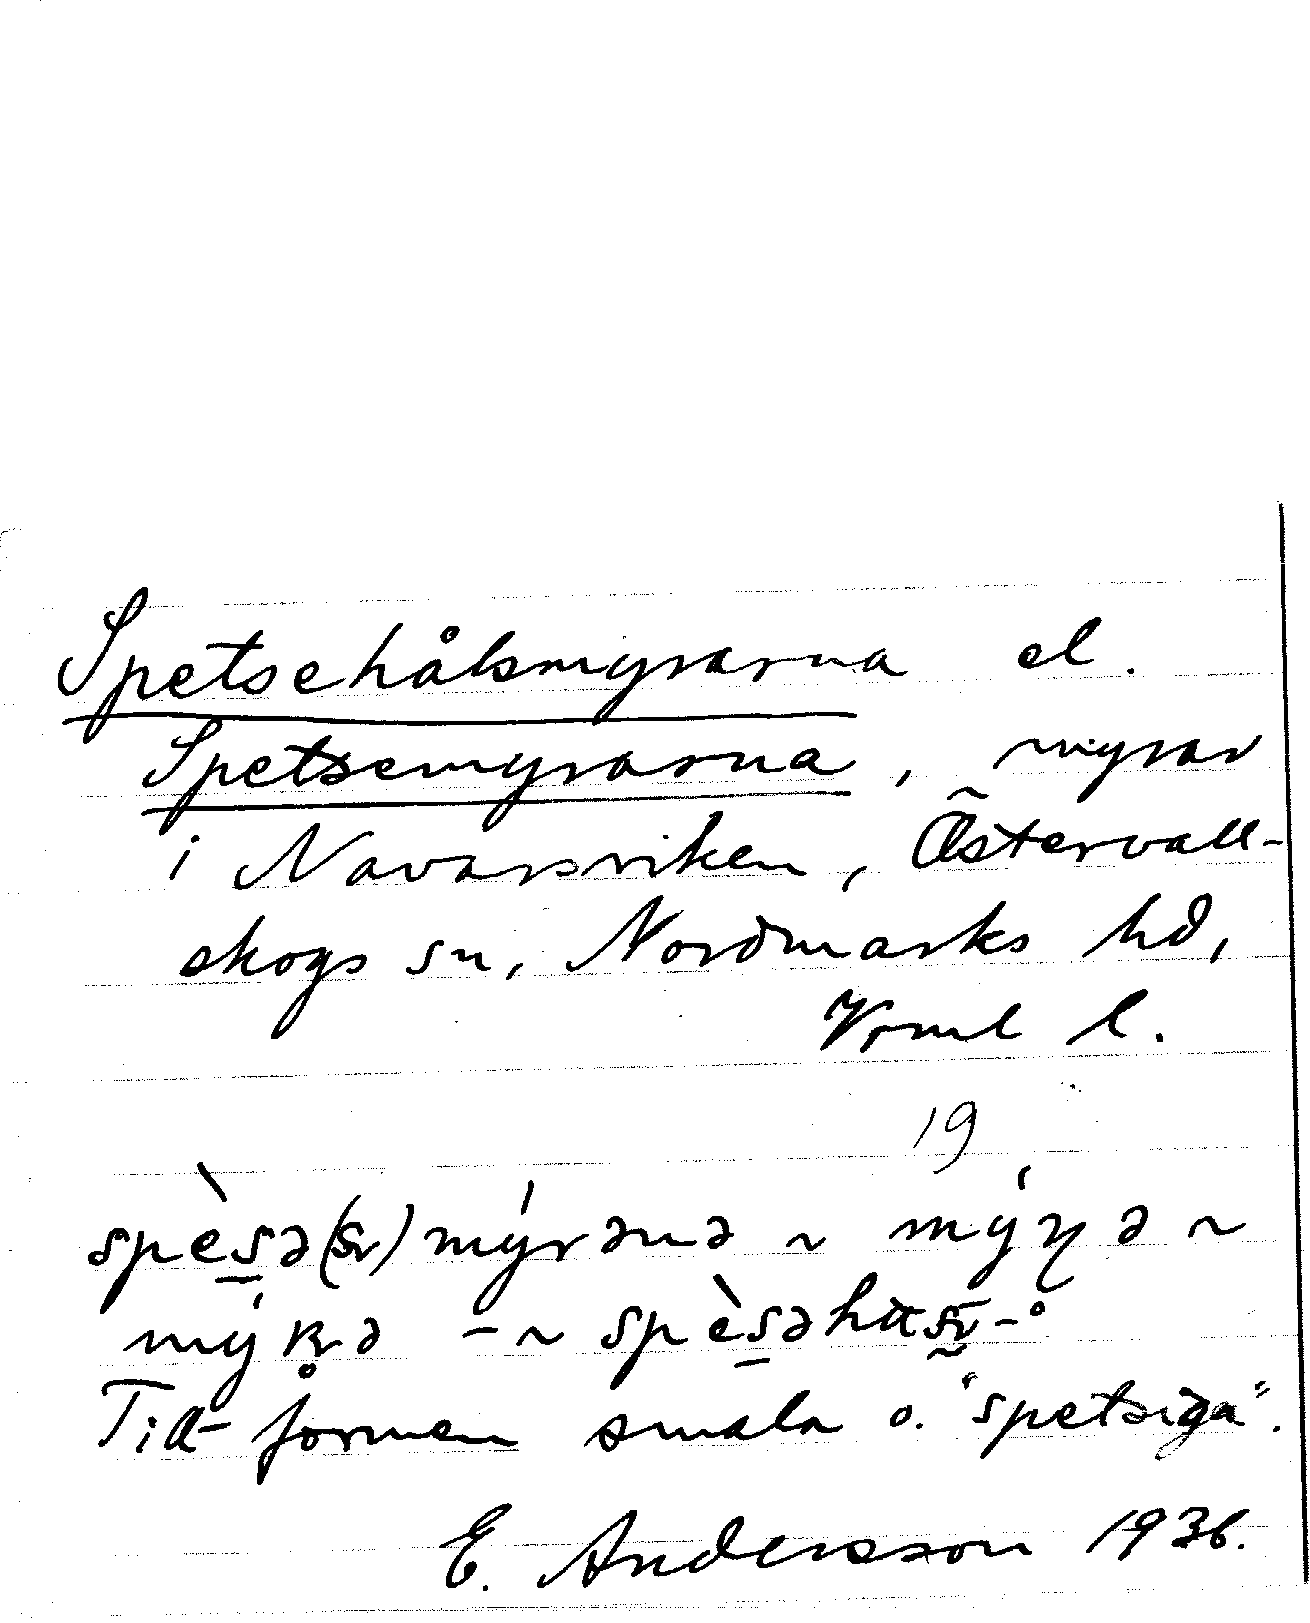 Spetsehålsmyrarna el.
Spetsemyrarna, myrar
i Navarsviken, Östervall-
skogs sn, Nordmarks hd,
Vrml l.
19
spèsə(sr)mýrəna ~ mýɳə ~
Till formen smala o. "spetsiga".
E. Andersson 1936.